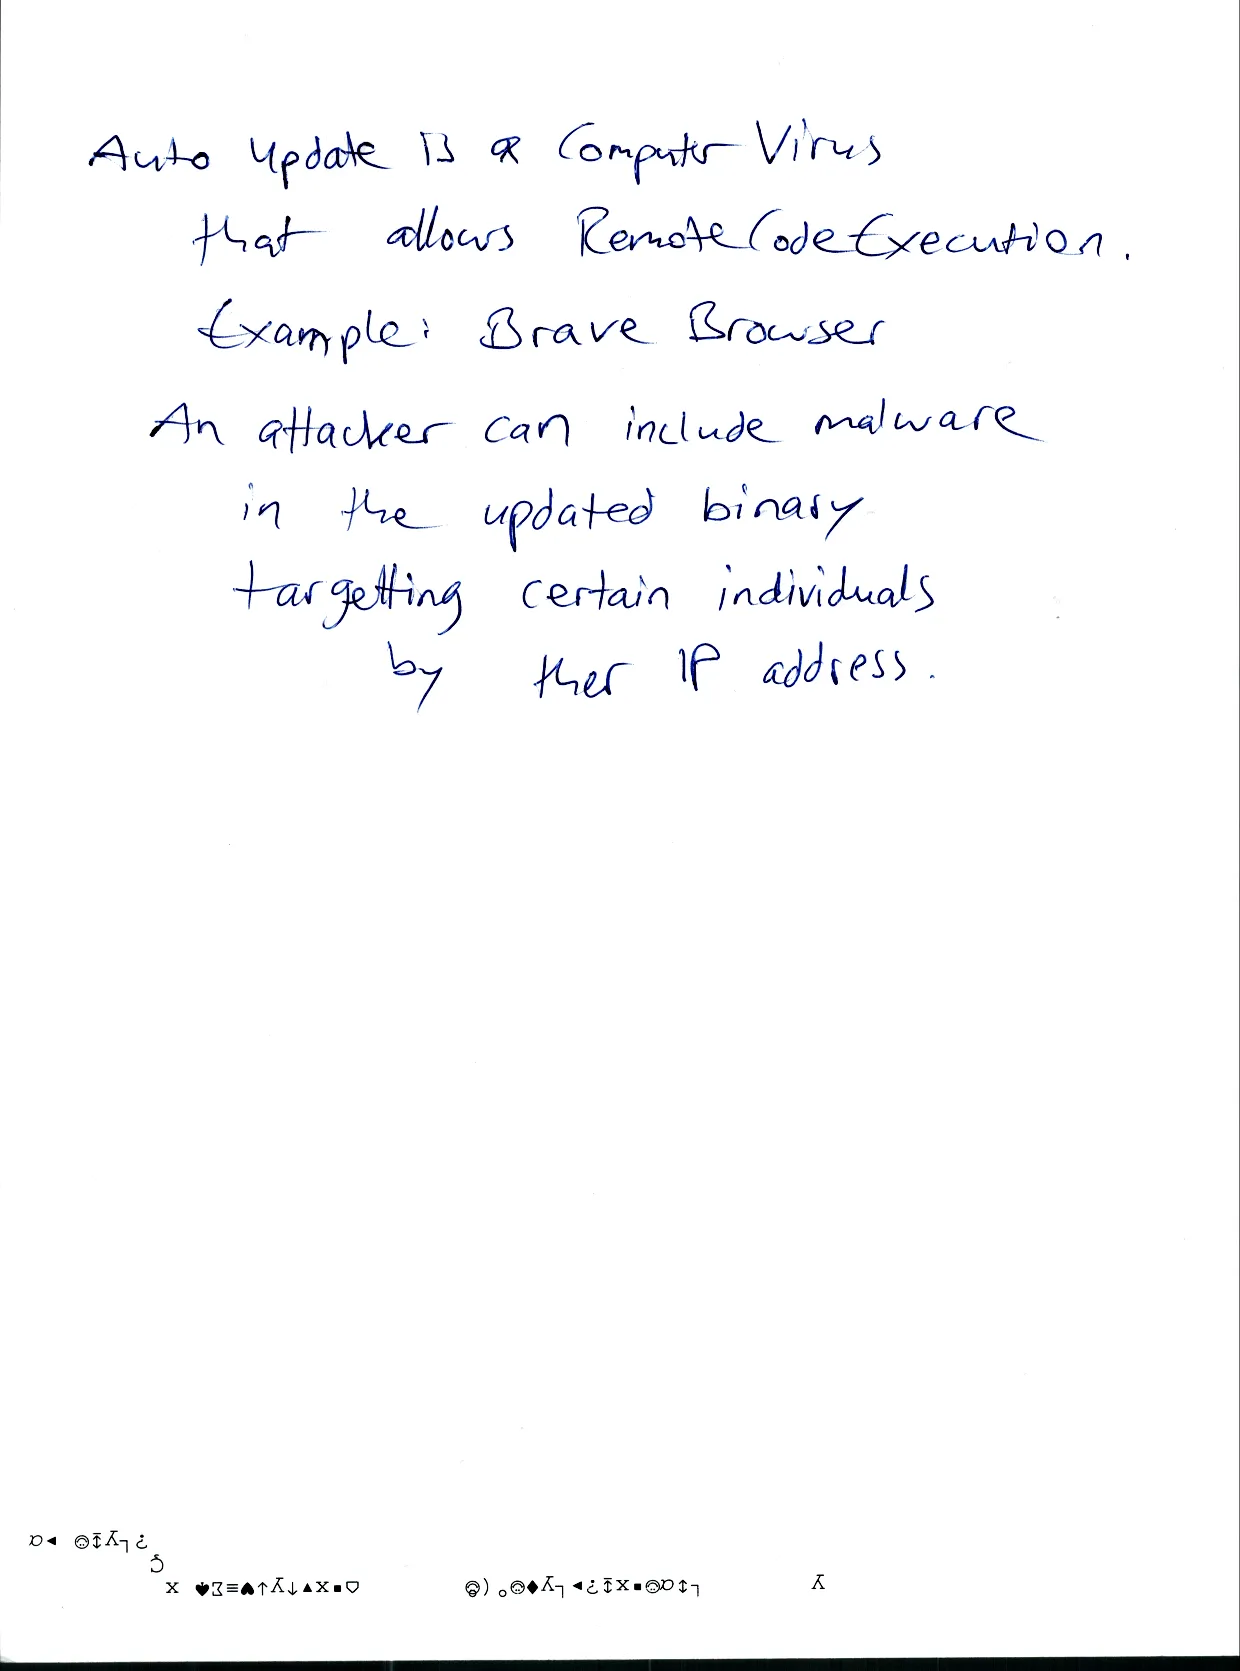 Auto Update is a Computer Virus
that allows Remote Code Execution.
Example: Brave Browser
An attacker can include malware
in the updated binary
targetting certain individuals
by ther IP address.